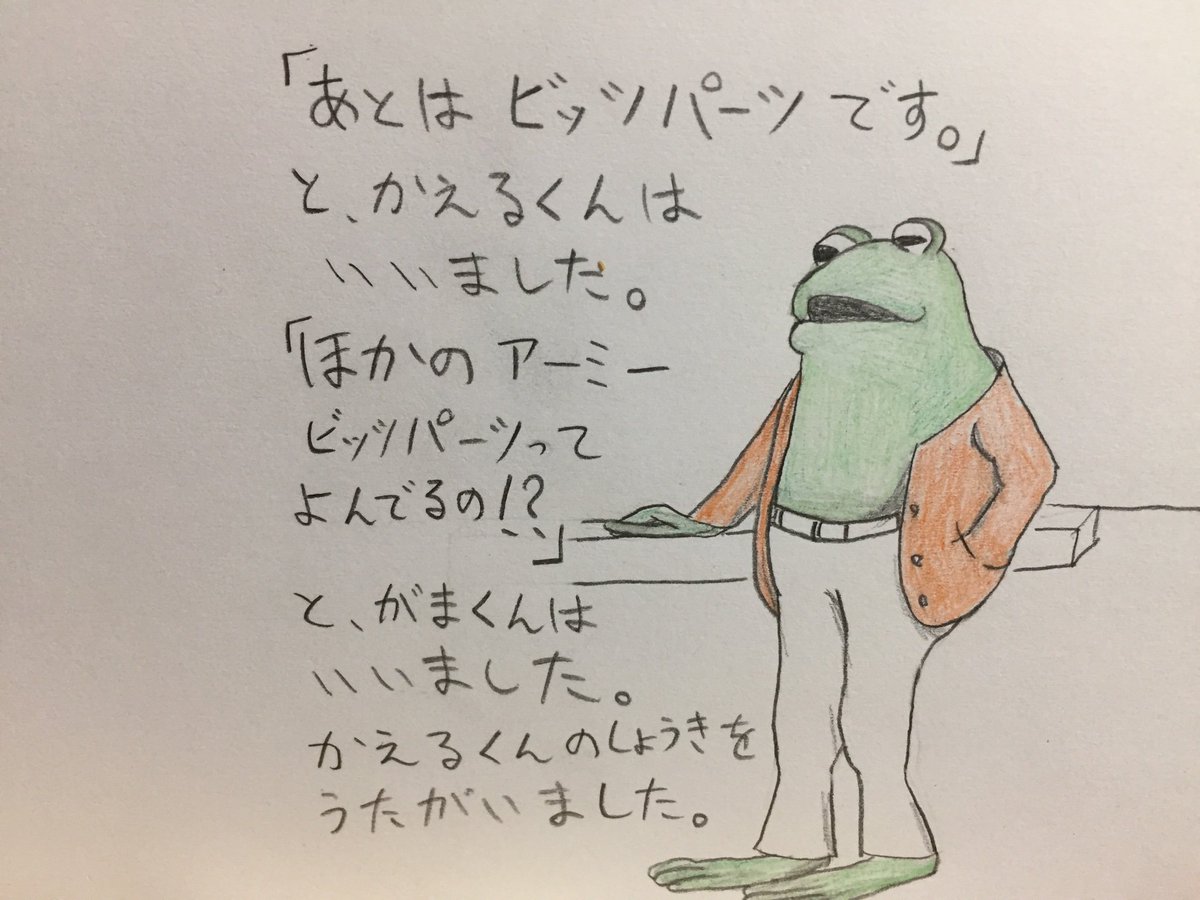 「あとは ビッツパーツ です。」
と、かえるくんは
いいました。
「ほかの アーミー
ビッツパーツって
よんでるの!?」
と、がまくんは
いいました。
かえるくんのしょうきを
うたがいました。